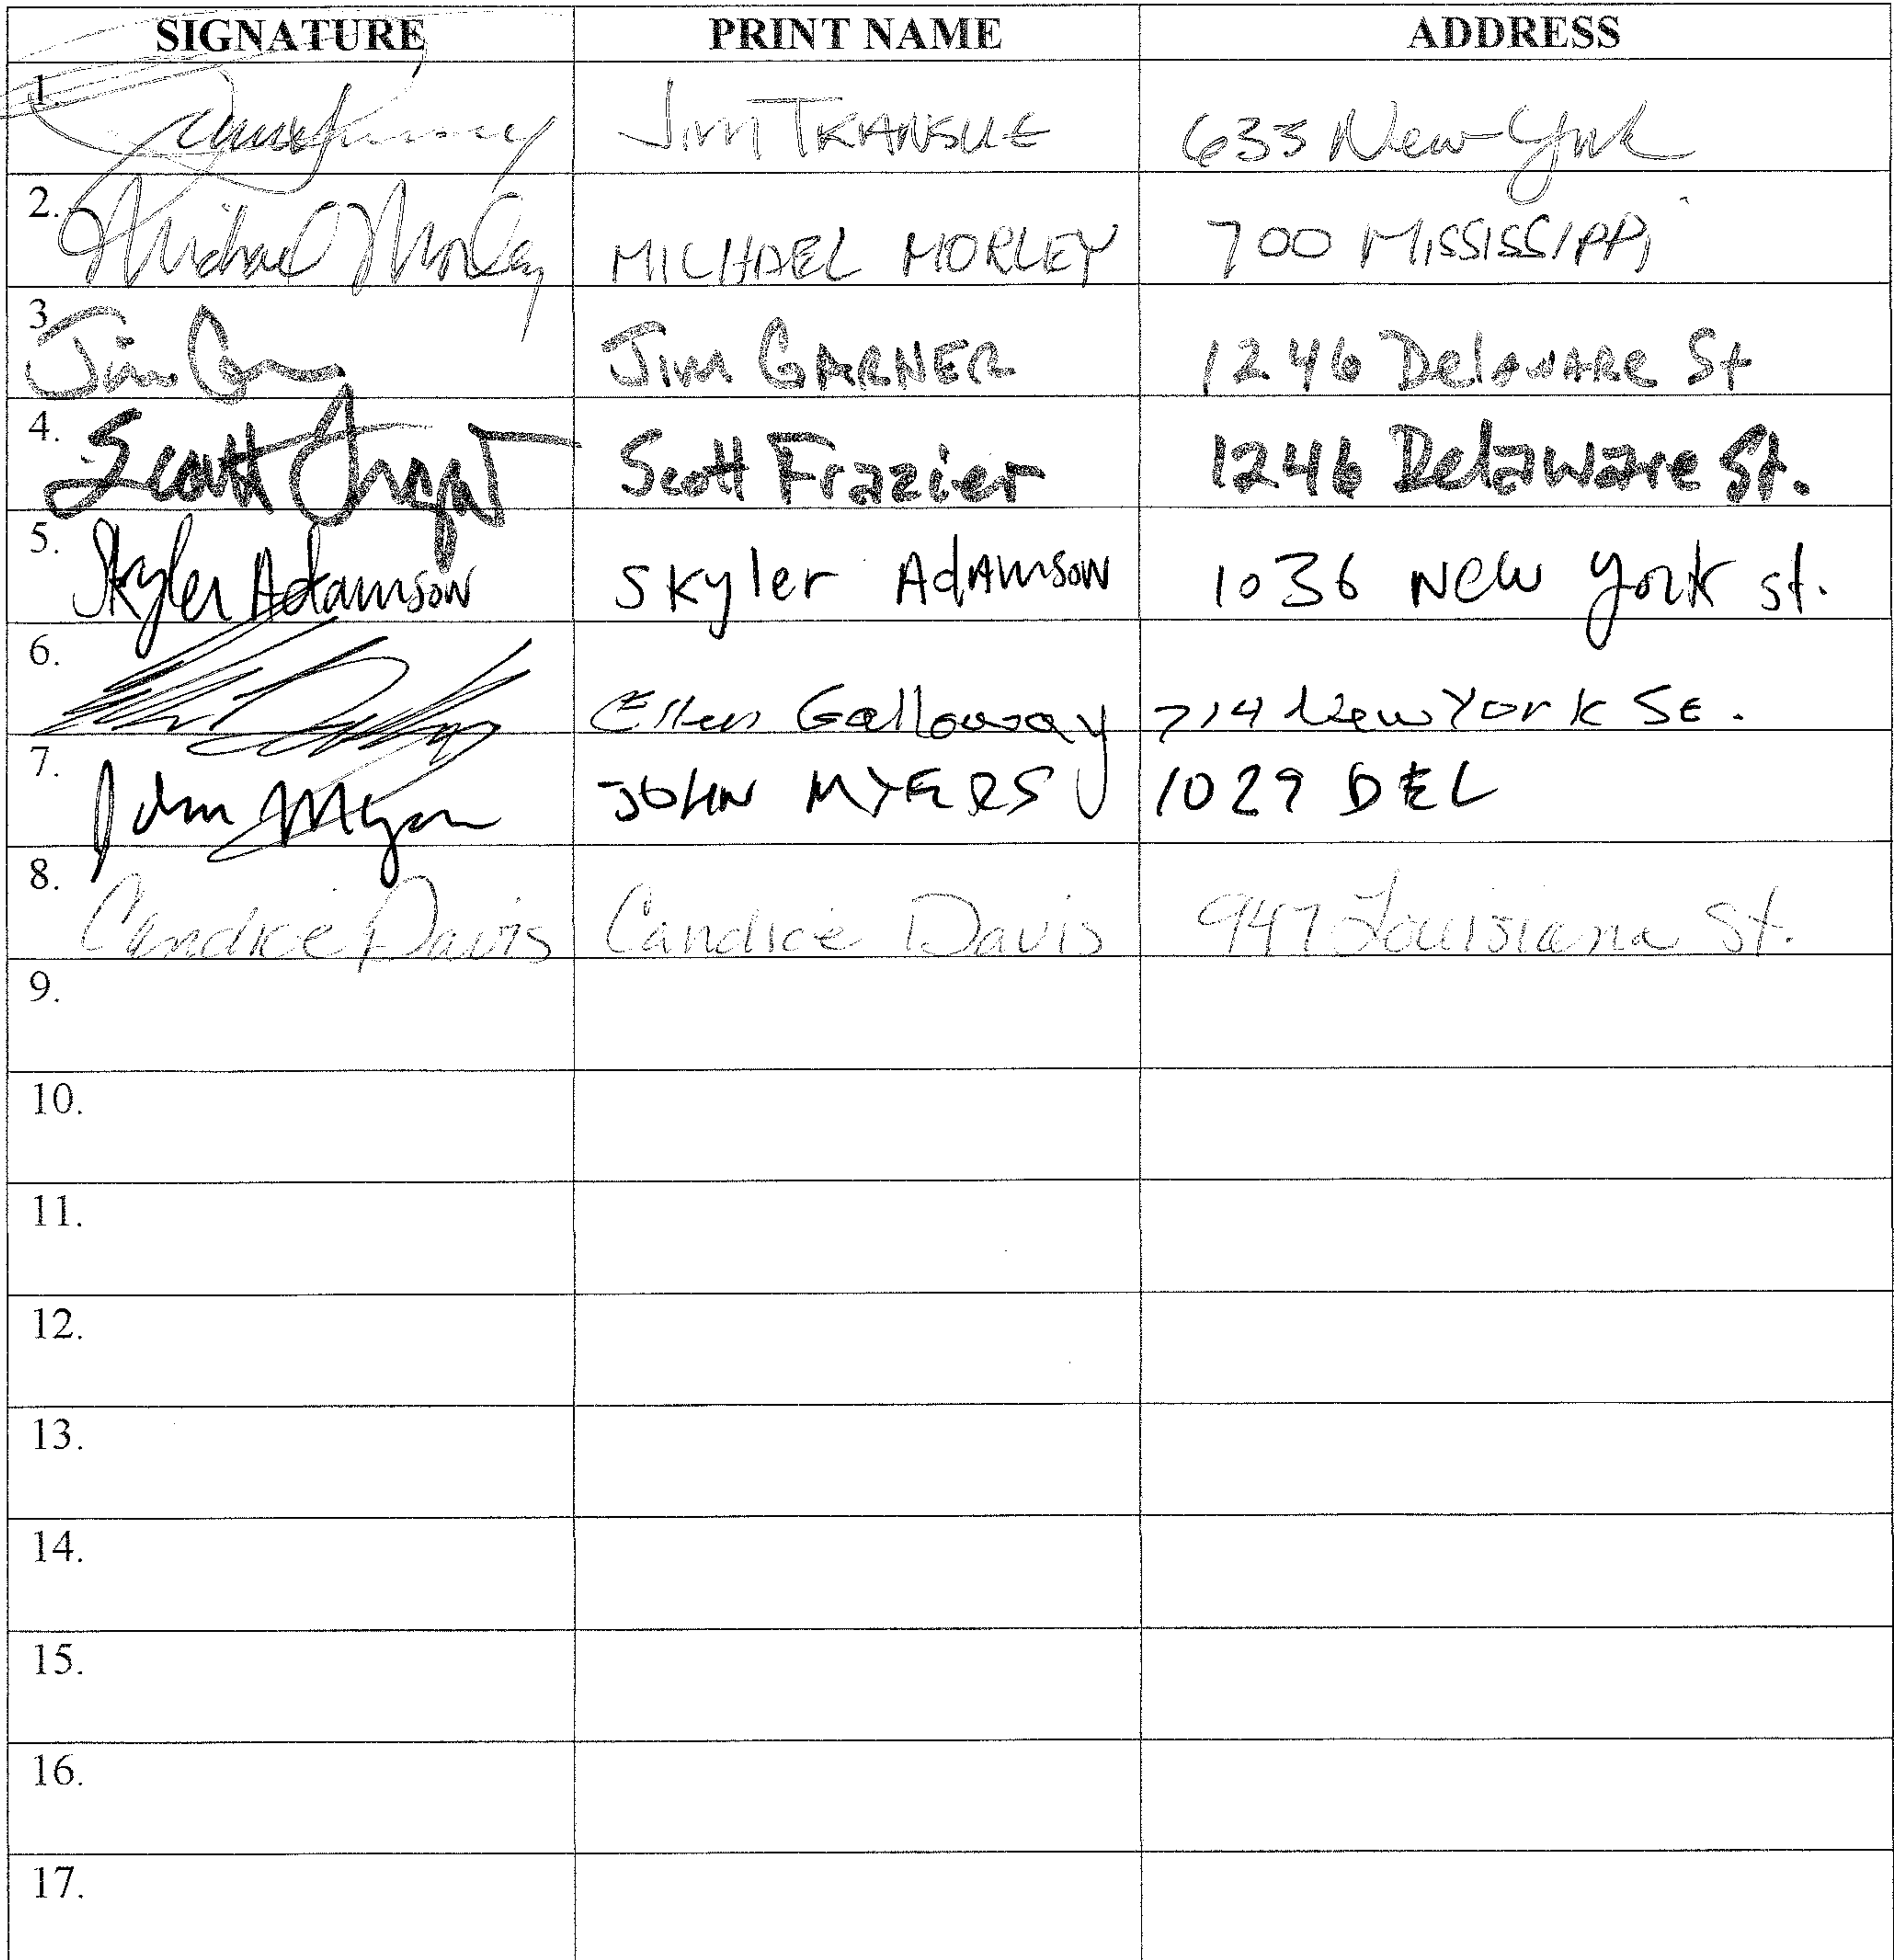 SIGNATURE PRINT NAME ADDRESS
1. JIM TRANSUE 633 New York
2. Michael Morley MICHAEL MORLEY 700 MISSISSIPPI
3 Jim JIM GARNER 1246 Delaware St
4. Scott Scott Frazier 1246 Delaware St.
5. Skyler Adamson Skyler Adamson 1036 New York st.
6. Galloway 714 New York St.
7. John Myers JOHN MYERS 1029 DEL
8. Candice Davis Candice Davis 947 Louisiana St.
9.
10.
11.
12.
13.
14.
15.
16.
17.